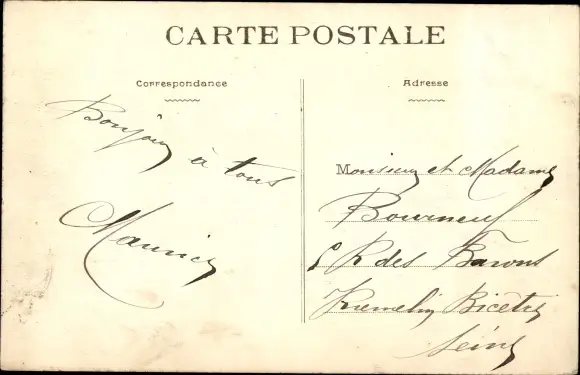 CARTE POSTALE
Correspondance
Adresse
Bonjour à tous
Maurice
Monsieur et Madame
Bourneuf
R des Barons
Kremelin Bicêtre
Seine